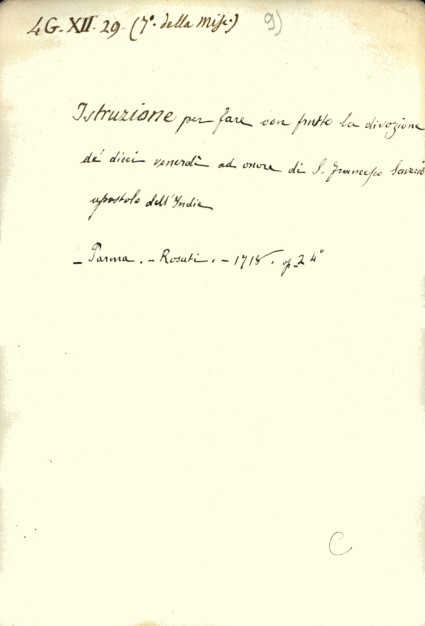 4 G. XII. 29 (7°. della Misc.) 9)
Istruzione per fare con frutto la divozione
de' dieci venerdì ad onore di S. Francesco Saverio
apostolo dell'Indie
– Parma. – Rosati. – 1718. op. 2 4°
C